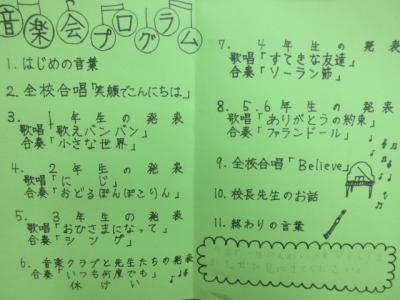 音楽会プログラム
1. はじめの言葉
2. 全校合唱「笑顔でこんにちは」
3. 1年生の発表
歌唱「歌えバンバン」
合奏「小さな世界」
4. 2年生の発表
歌唱「にじ」
合奏「おどるぽんぽこりん」
5. 3年生の発表
歌唱「おひさまになって」
合奏「シング」
6. 音楽クラブと先生たちの発表
「いつも何度でも」
休けい
7. 4年生の発表
歌唱「すてきな友達」
合奏「ソーラン節」
8. 5.6年生の発表
歌唱「ありがとうの約束」
合奏「ファランドール」
9. 全校合唱「Believe」
10. 校長先生のお話
11. 終わりの言葉